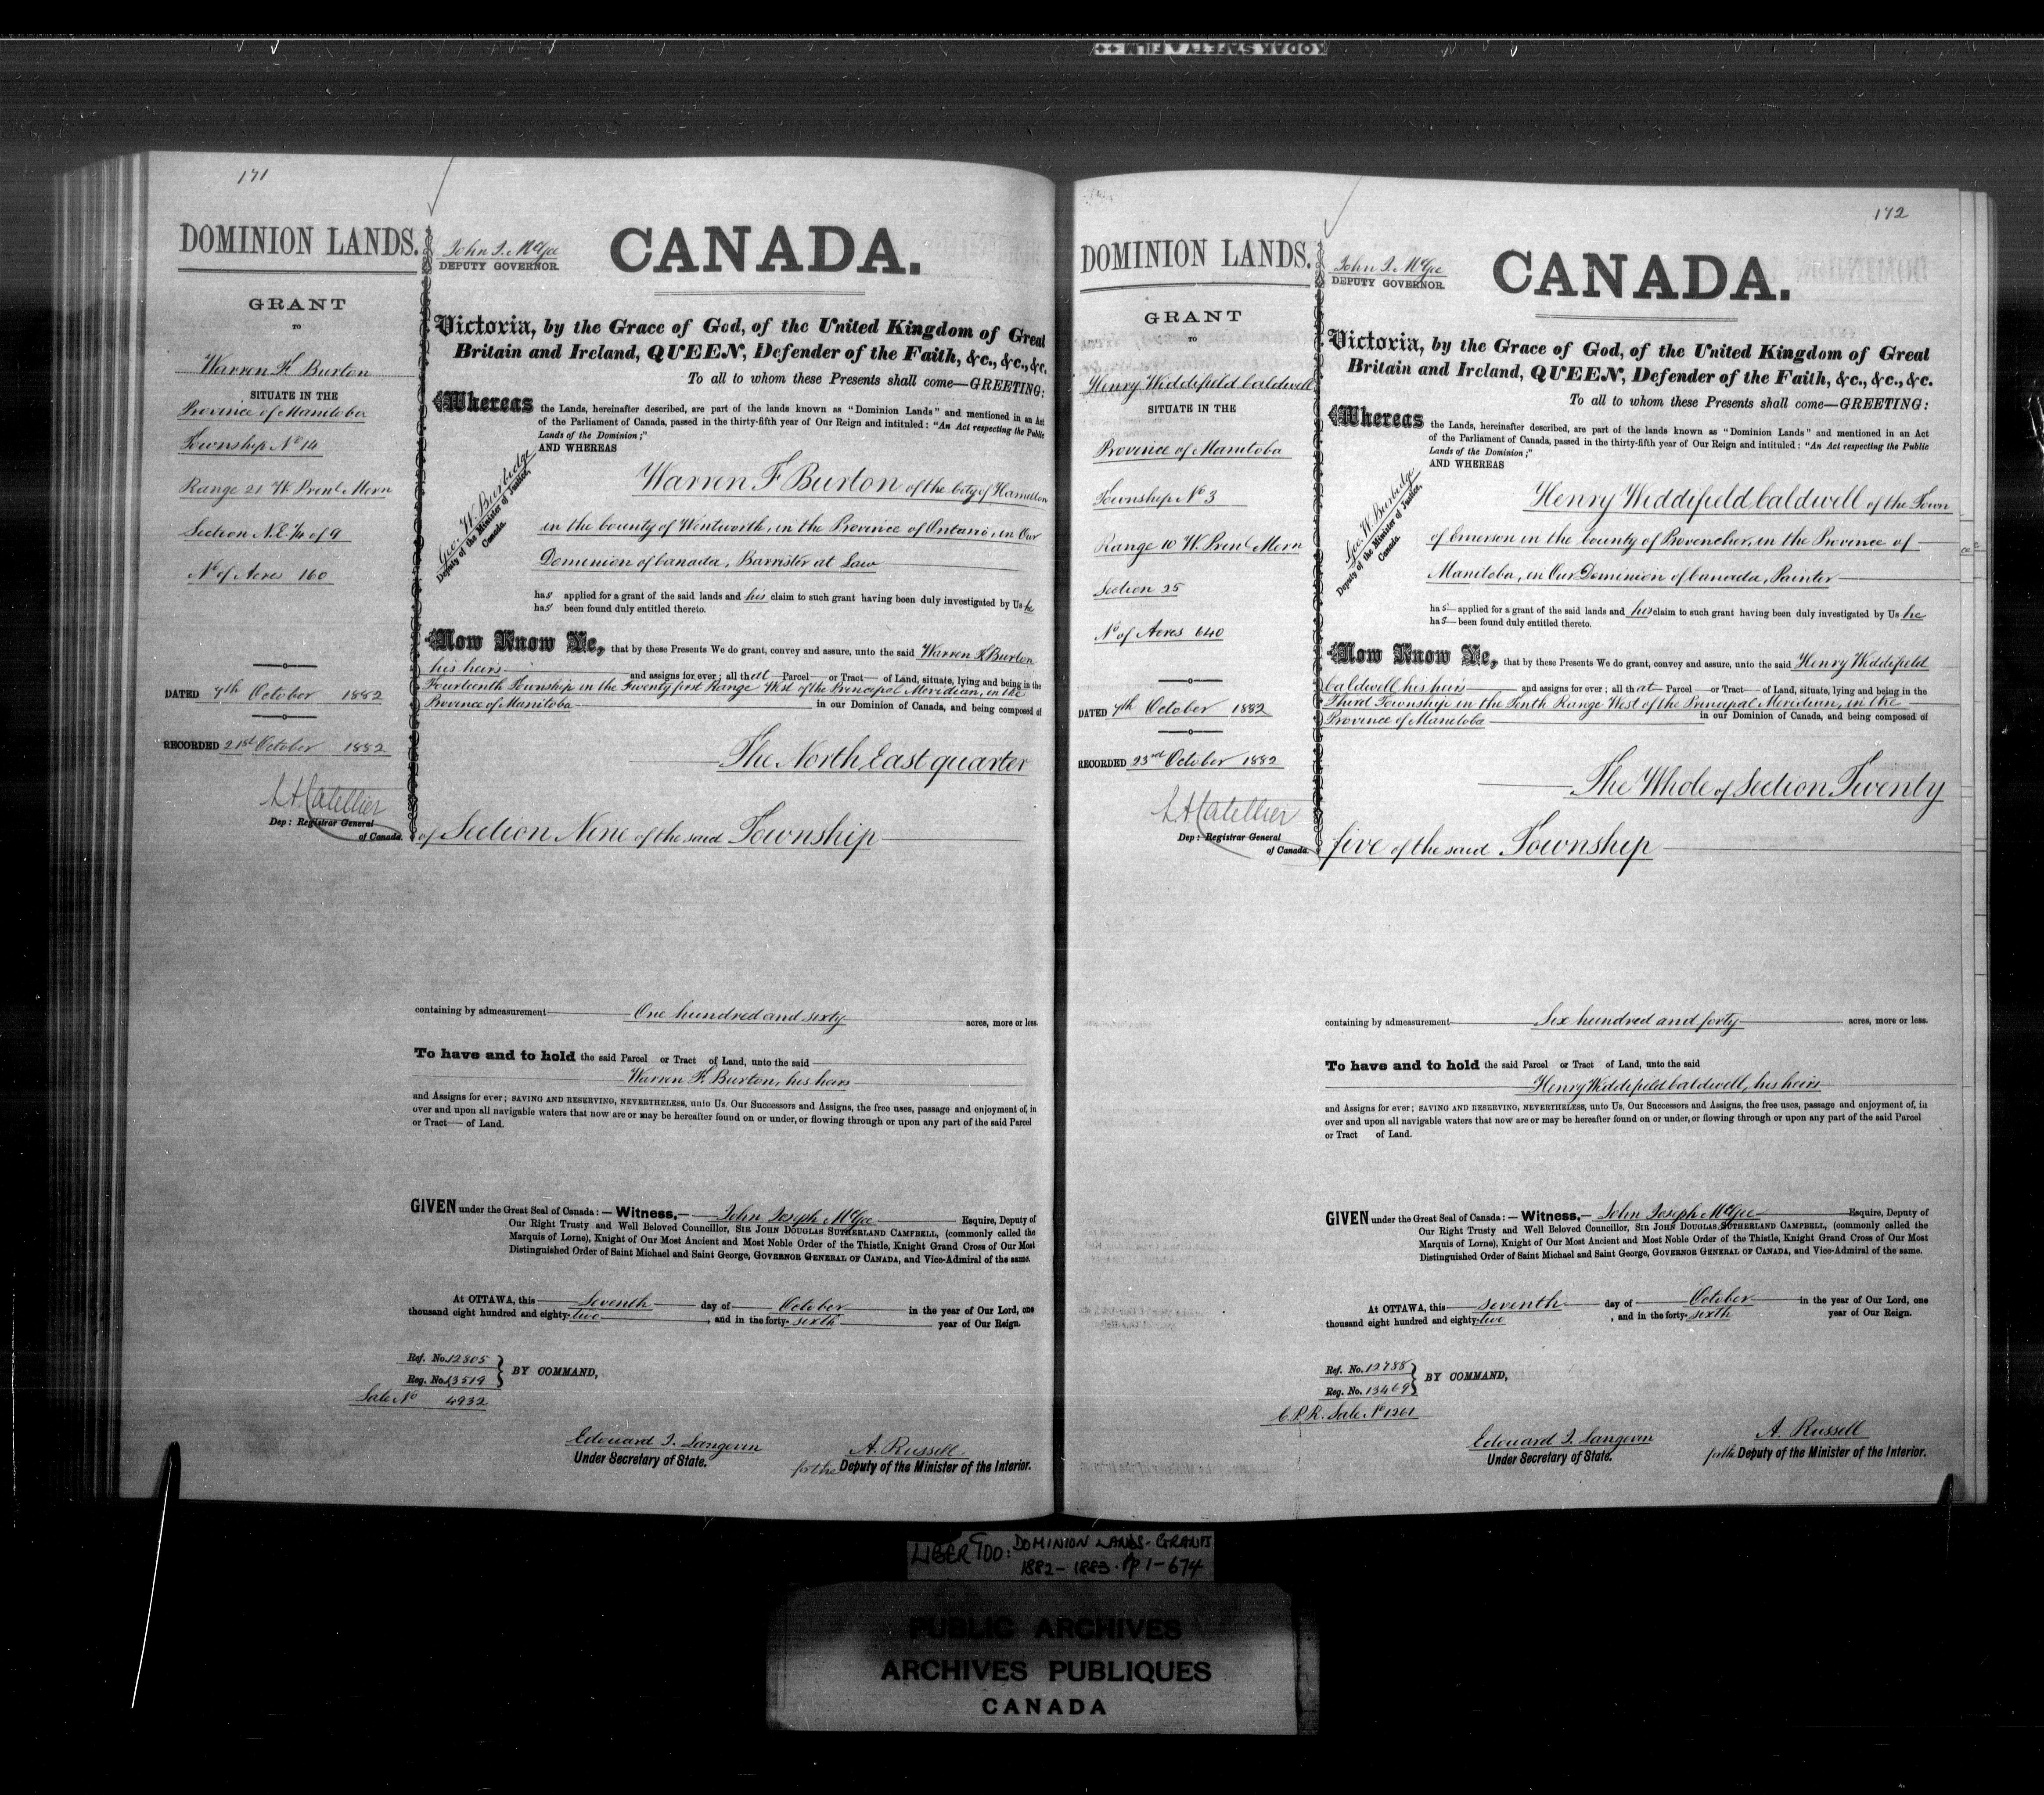 KODAK SAFETY FILM
171
DOMINION LANDS.
GRANT
TO
Warren F. Burton
SITUATE IN THE
Province of Manitoba
Township No 14
Range 21 W. Prenl Mern
Section N.E. 1/4 of 9
No of Acres 160
DATED 7th October 1882
RECORDED 21st October 1882
L A Catellier
Dep: Registrar General
of Canada.
John J. McGee
DEPUTY GOVERNOR.
CANADA.
Victoria, by the Grace of God, of the United Kingdom of Great
Britain and Ireland, QUEEN, Defender of the Faith, &c., &c., &c.
To all to whom these Presents shall come—GREETING:
Whereas the Lands, hereinafter described, are part of the lands known as "Dominion Lands" and mentioned in an Act
of the Parliament of Canada, passed in the thirty-fifth year of Our Reign and intituled: "An Act respecting the Public
Lands of the Dominion;"
AND WHEREAS
Geo. W. Burbidge
Deputy of the Minister of Justice,
Canada.
Warren F Burton of the City of Hamilton
in the County of Wentworth, in the Province of Ontario, in Our
Dominion of Canada, Barrister at Law
has applied for a grant of the said lands and his claim to such grant having been duly investigated by Us he
has been found duly entitled thereto.
Now Know Ye, that by these Presents We do grant, convey and assure, unto the said Warren F. Burton
his heirs and assigns for ever; all that Parcel or Tract of Land, situate, lying and being in the
Fourteenth Township in the Twenty first Range West of the Principal Meridian, in the
Province of Manitoba in our Dominion of Canada, and being composed of
The North East quarter
of Section Nine of the said Township
containing by admeasurement One hundred and sixty acres, more or less.
To have and to hold the said Parcel or Tract of Land, unto the said
Warren F. Burton, his heirs
and Assigns for ever; SAVING AND RESERVING, NEVERTHELESS, unto Us, Our Successors and Assigns, the free uses, passage and enjoyment of, in
over and upon all navigable waters that now are or may be hereafter found on or under, or flowing through or upon any part of the said Parcel
or Tract of Land.
GIVEN under the Great Seal of Canada:—Witness,— John Joseph McGee Esquire, Deputy of
Our Right Trusty and Well Beloved Councillor, SIR JOHN DOUGLAS SUTHERLAND CAMPBELL, (commonly called the
Marquis of Lorne), Knight of Our Most Ancient and Most Noble Order of the Thistle, Knight Grand Cross of Our Most
Distinguished Order of Saint Michael and Saint George, GOVERNOR GENERAL OF CANADA, and Vice-Admiral of the same.
At OTTAWA, this Seventh day of October in the year of Our Lord, one
thousand eight hundred and eighty-two, and in the forty-sixth year of Our Reign.
Ref. No. 12805
Reg. No. 13519
BY COMMAND,
Sale No 4932
Edouard J. Langevin
Under Secretary of State.
A. Russell
for the Deputy of the Minister of the Interior.
172
DOMINION LANDS.
GRANT
TO
Henry Widdifield Caldwell
SITUATE IN THE
Province of Manitoba
Township No 3
Range 10 W. Prenl Mern
Section 25
No of Acres 640
DATED 7th October 1882
RECORDED 23rd October 1882
L A Catellier
Dep: Registrar General
of Canada.
John J. McGee
DEPUTY GOVERNOR.
CANADA.
Victoria, by the Grace of God, of the United Kingdom of Great
Britain and Ireland, QUEEN, Defender of the Faith, &c., &c., &c.
To all to whom these Presents shall come—GREETING:
Whereas the Lands, hereinafter described, are part of the lands known as "Dominion Lands" and mentioned in an Act
of the Parliament of Canada, passed in the thirty-fifth year of Our Reign and intituled: "An Act respecting the Public
Lands of the Dominion;"
AND WHEREAS
Geo. W. Burbidge
Deputy of the Minister of Justice,
Canada.
Henry Widdifield Caldwell of the Town
of Emerson in the County of Provencher, in the Province of
Manitoba, in Our Dominion of Canada, Painter
has applied for a grant of the said lands and his claim to such grant having been duly investigated by Us he
has been found duly entitled thereto.
Now Know Ye, that by these Presents We do grant, convey and assure, unto the said Henry Widdifield
Caldwell his heirs and assigns for ever; all that Parcel or Tract of Land, situate, lying and being in the
Third Township in the Tenth Range West of the Principal Meridian, in the
Province of Manitoba in our Dominion of Canada, and being composed of
The Whole of Section Twenty
five of the said Township
containing by admeasurement Six hundred and forty acres, more or less.
To have and to hold the said Parcel or Tract of Land, unto the said
Henry Widdifield Caldwell, his heirs
and Assigns for ever; SAVING AND RESERVING, NEVERTHELESS, unto Us, Our Successors and Assigns, the free uses, passage and enjoyment of, in
over and upon all navigable waters that now are or may be hereafter found on or under, or flowing through or upon any part of the said Parcel
or Tract of Land.
GIVEN under the Great Seal of Canada:—Witness,— John Joseph McGee Esquire, Deputy of
Our Right Trusty and Well Beloved Councillor, SIR JOHN DOUGLAS SUTHERLAND CAMPBELL, (commonly called the
Marquis of Lorne), Knight of Our Most Ancient and Most Noble Order of the Thistle, Knight Grand Cross of Our Most
Distinguished Order of Saint Michael and Saint George, GOVERNOR GENERAL OF CANADA, and Vice-Admiral of the same.
At OTTAWA, this seventh day of October in the year of Our Lord, one
thousand eight hundred and eighty-two, and in the forty-sixth year of Our Reign.
Ref. No. 12788
Reg. No. 13469
BY COMMAND,
C.P.R. Sale No 1261
Edouard J. Langevin
Under Secretary of State.
A. Russell
for the Deputy of the Minister of the Interior.
LIBER 900: DOMINION LANDS-GRANTS
1882-1883. pp 1-674
PUBLIC ARCHIVES
ARCHIVES PUBLIQUES
CANADA